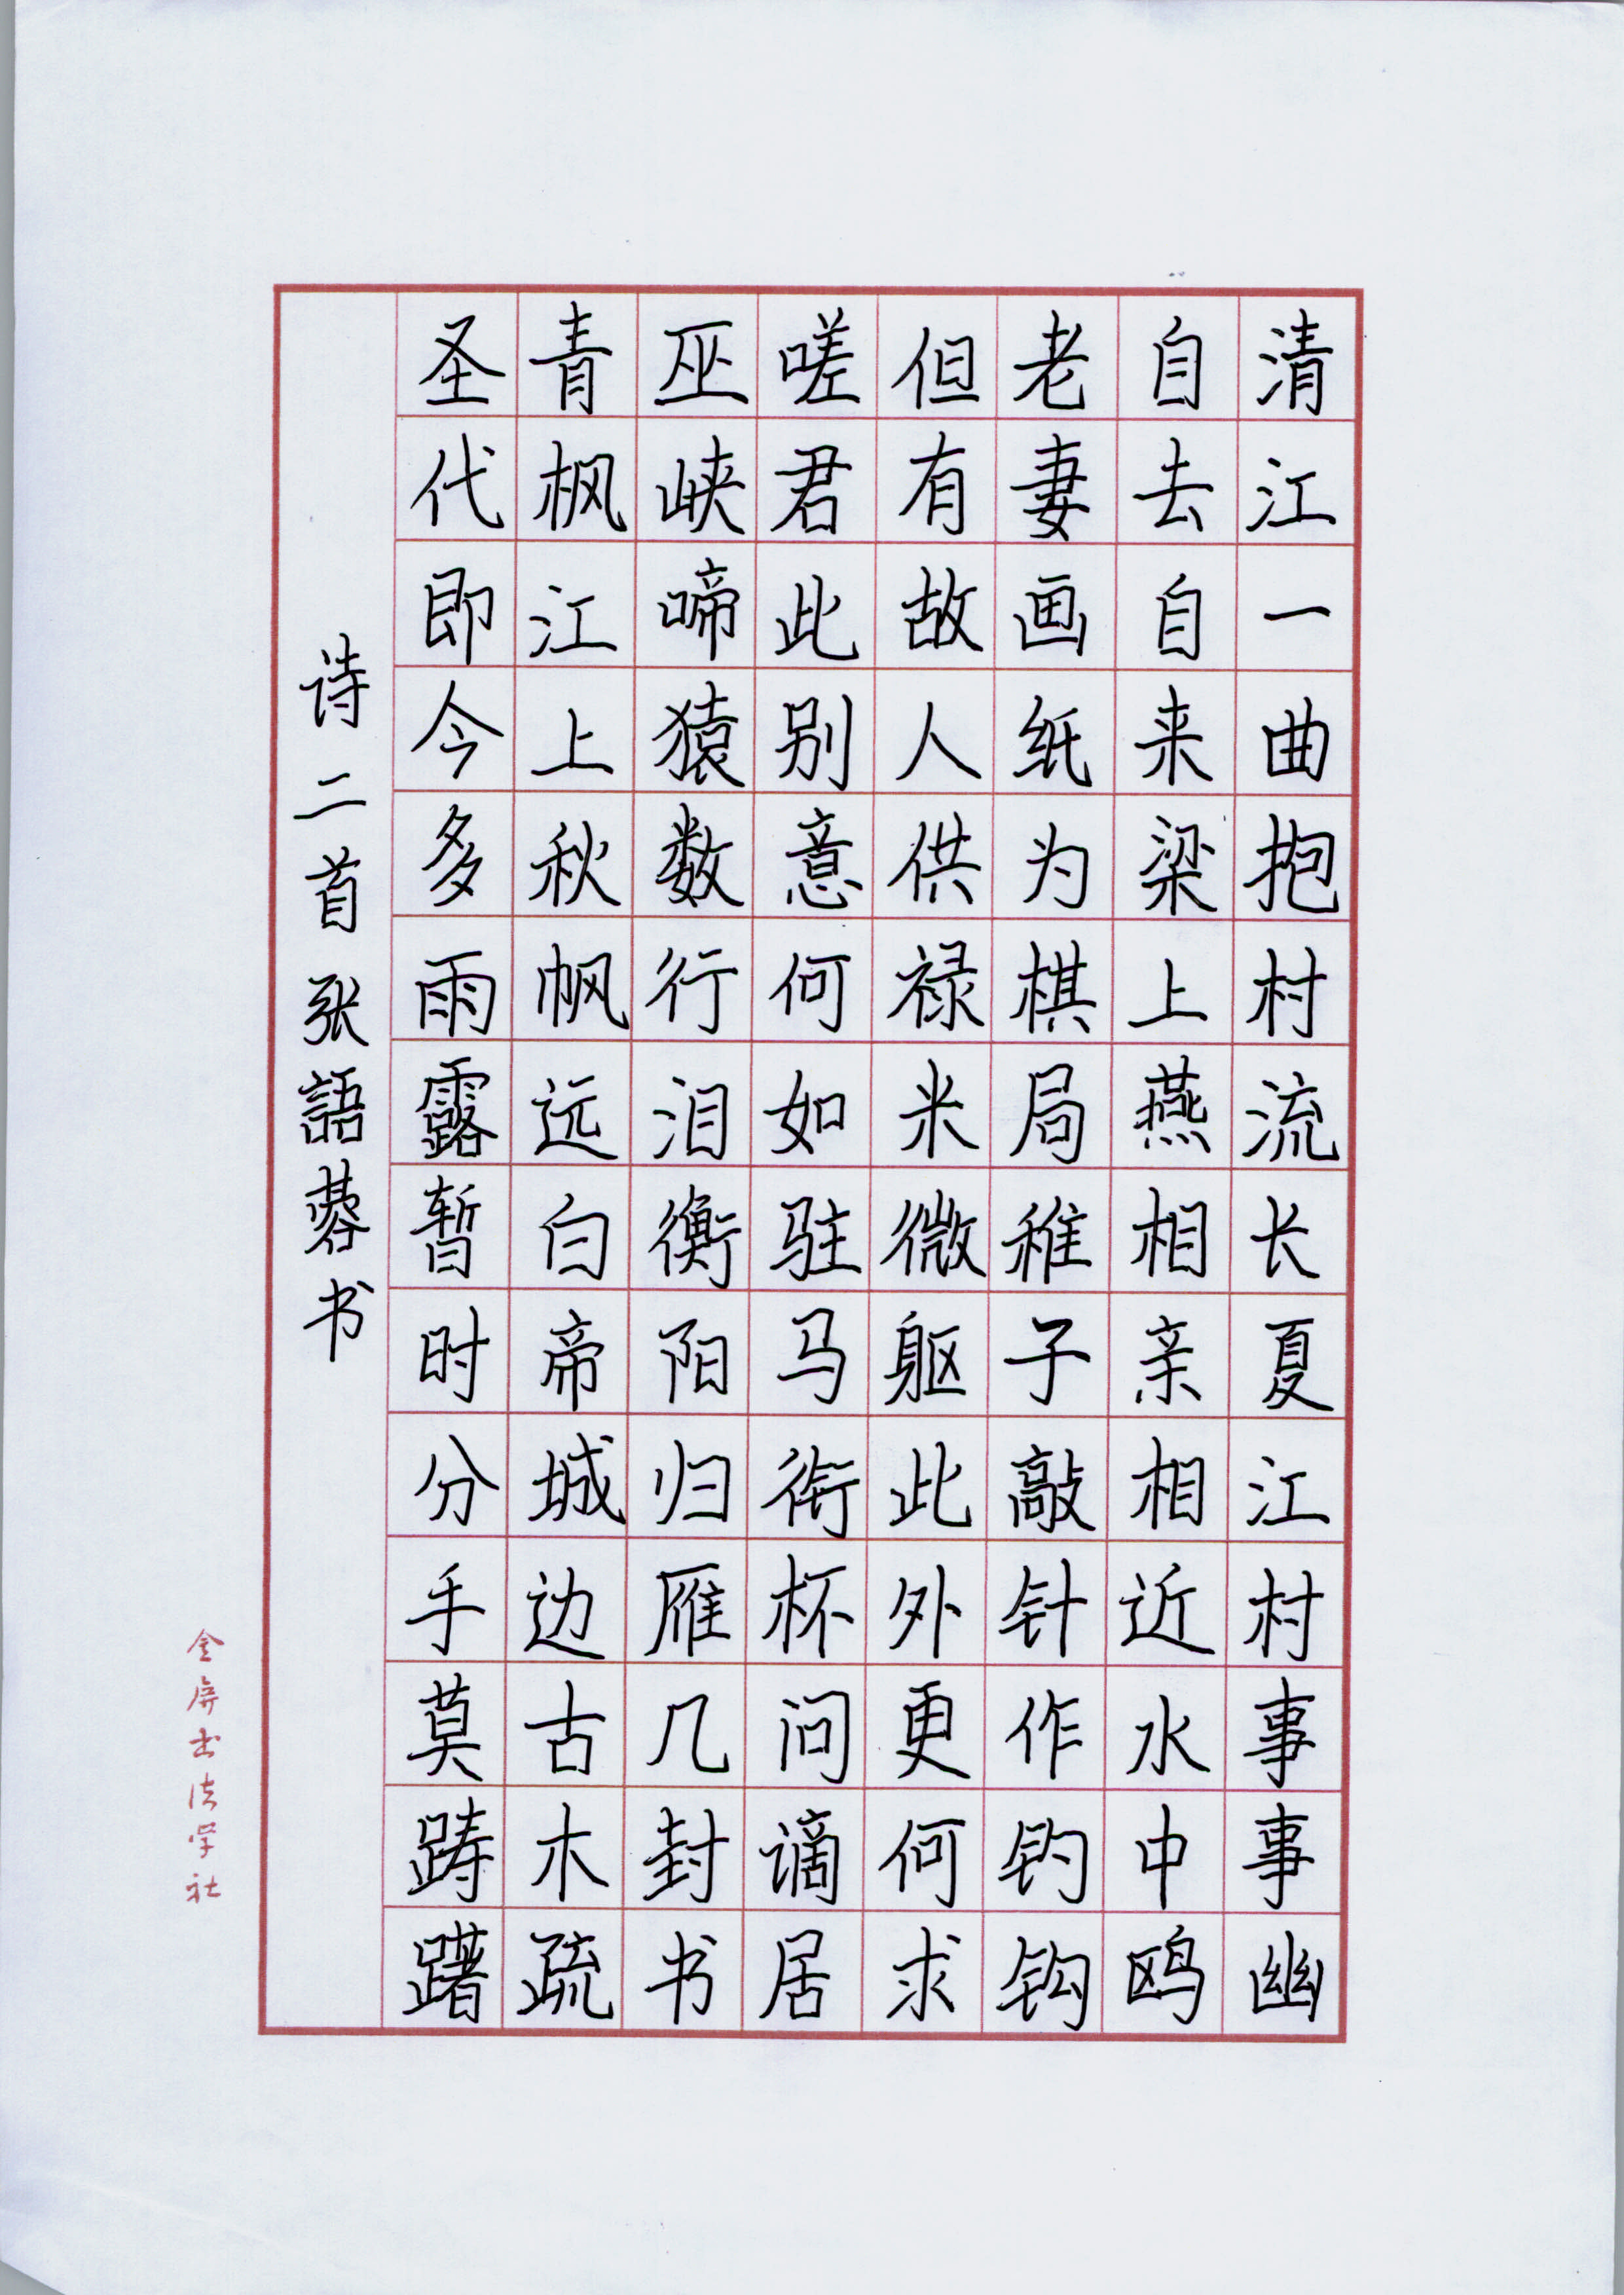 清江一曲抱村流长夏江村事事幽
自去自来梁上燕相亲相近水中鸥
老妻画纸为棋局稚子敲针作钓钩
但有故人供禄米微躯此外更何求
嗟君此别意何如驻马衔杯问谪居
巫峡啼猿数行泪衡阳归雁几封书
青枫江上秋帆远白帝城边古木疏
圣代即今多雨露暂时分手莫踌躇
诗二首张語蓉书
金屏书法学社